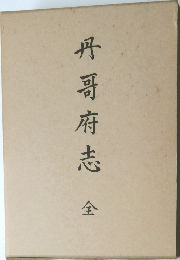 丹哥府志
全